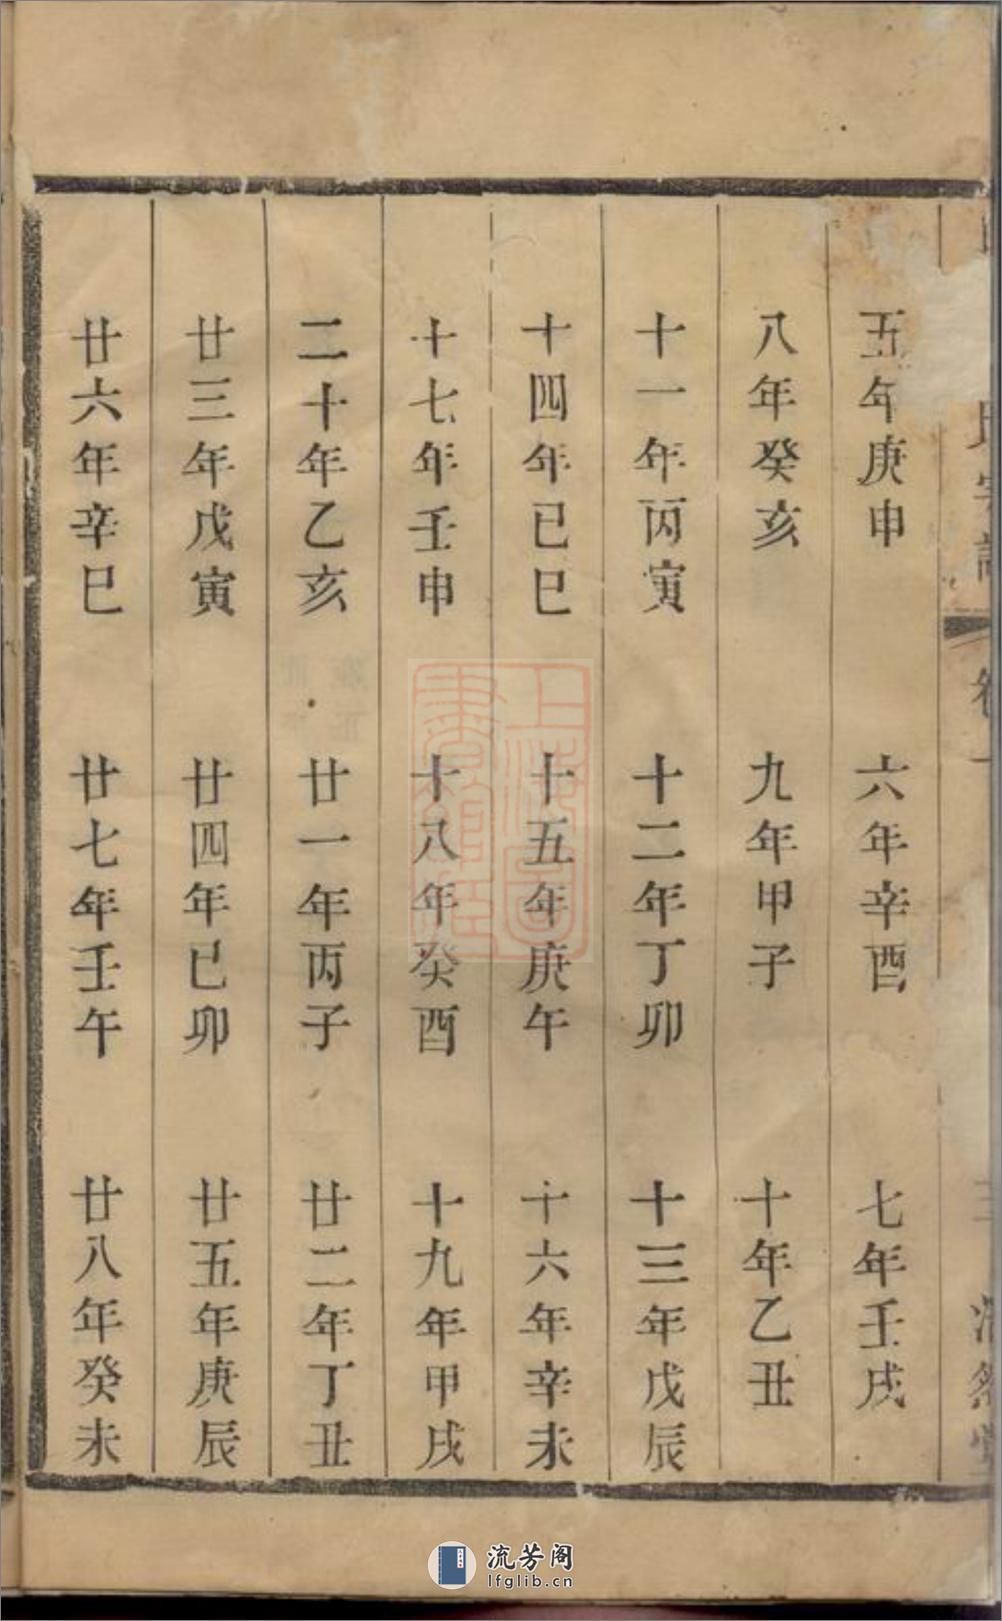 五年庚申　六年辛酉　七年壬戌
八年癸亥　九年甲子　十年乙丑
十一年丙寅　十二年丁卯　十三年戊辰
十四年已巳　十五年庚午　十六年辛未
十七年壬申　十八年癸酉　十九年甲戌
二十年乙亥　廿一年丙子　廿二年丁丑
廿三年戊寅　廿四年已卯　廿五年庚辰
廿六年辛巳　廿七年壬午　廿八年癸未
流芳阁
lfglib.cn